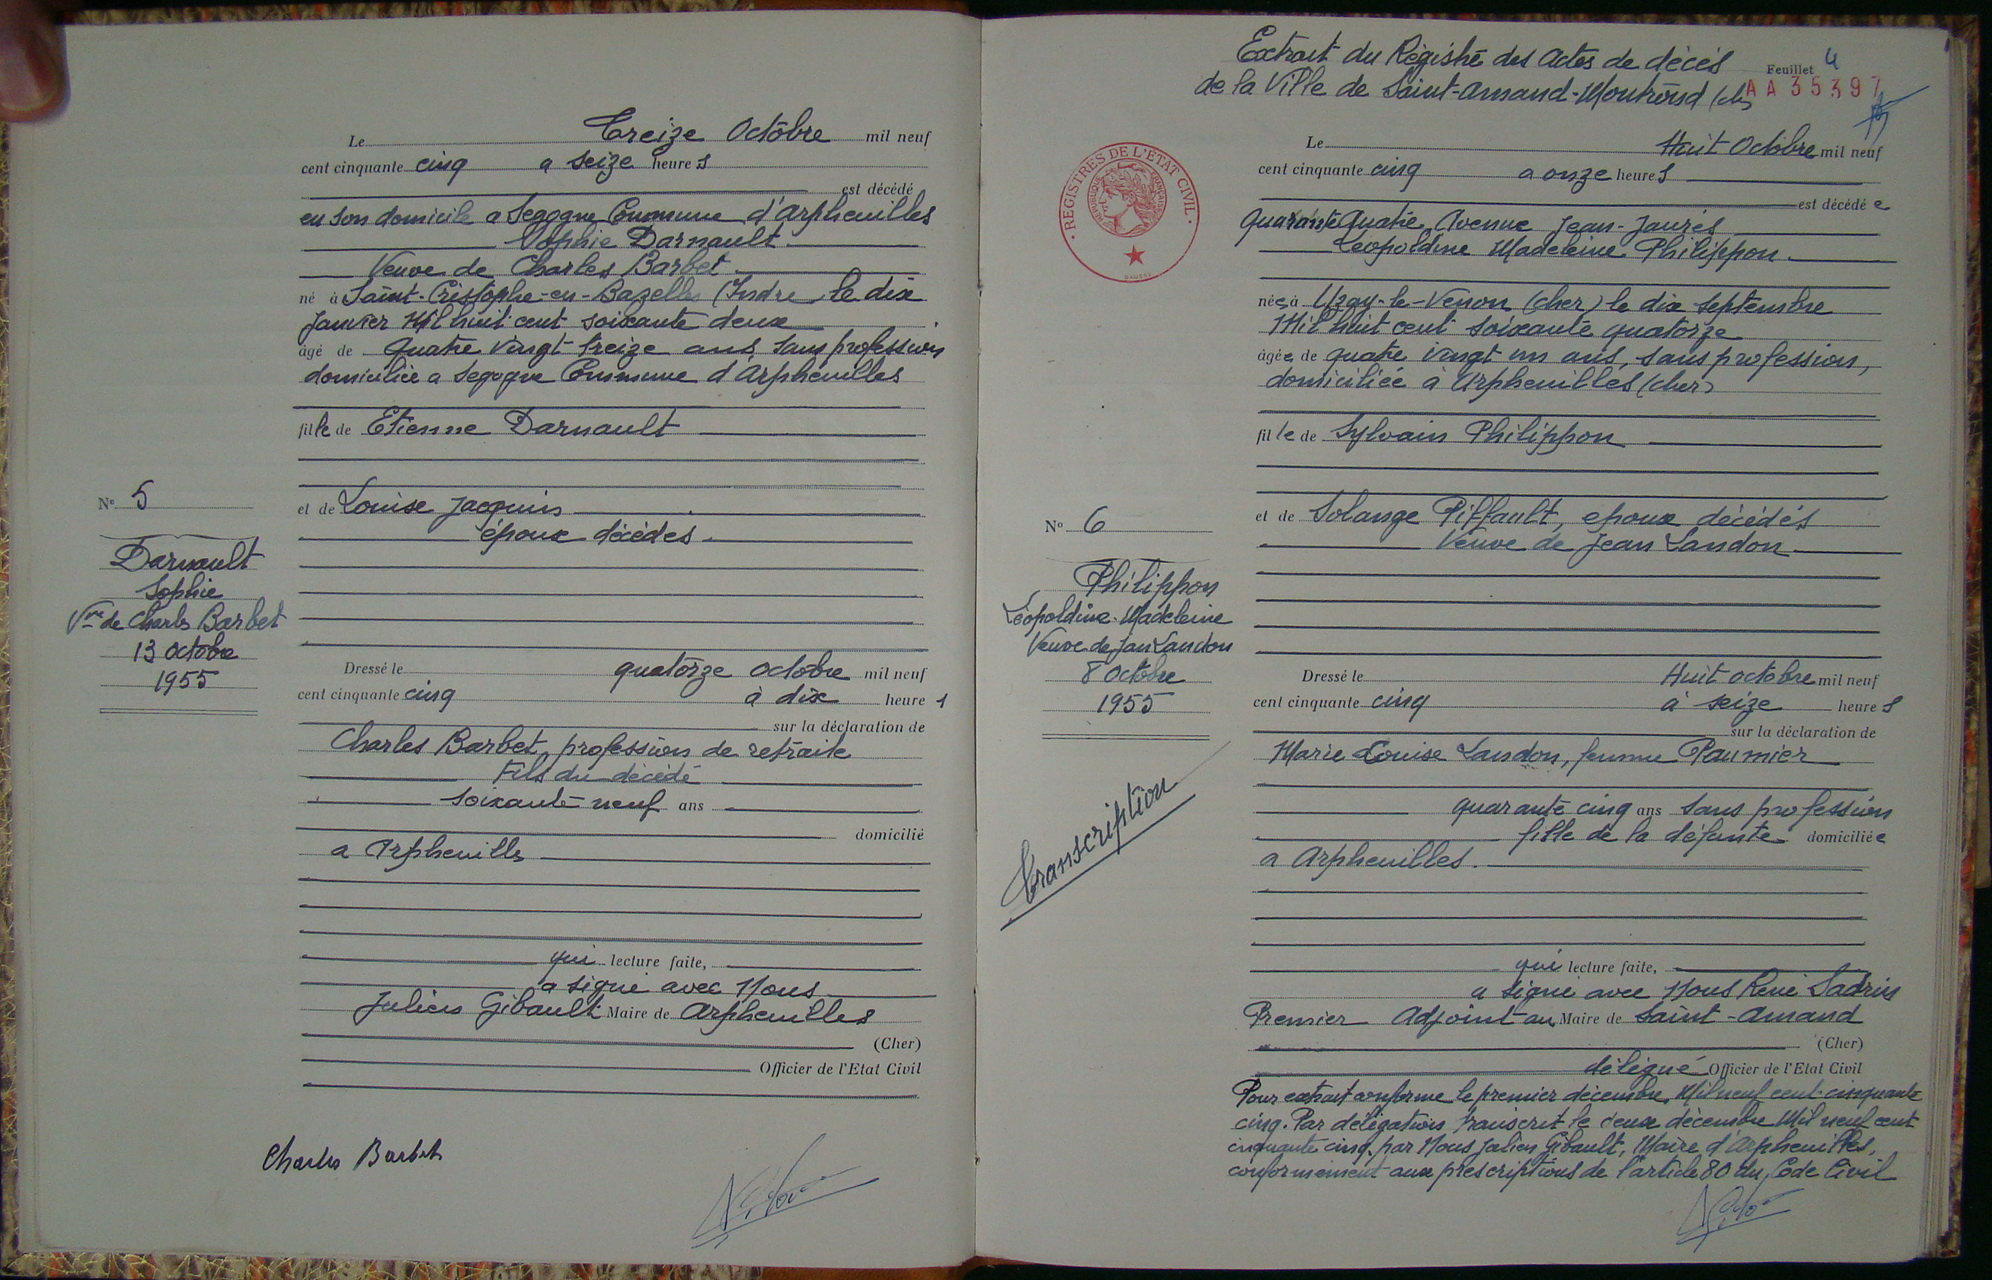 Le Treize Octobre mil neuf
cent cinquante cinq a seize heures
est décédé
en son domicile a Segogne Commune d'Arpheuilles
Sophie Darnault
Veuve de Charles Barbet
né à Saint-Cristophe-en-Bazelle (Indre, le dix
Janvier Mil huit cent soixante deux
âgé de quatre vingt-treize ans sans profession
domiciliée a Segogne Commune d'Arpheuilles
fille de Etienne Darnault
et de Louise Jacquin
époux décédés.
N° 5
Darnault
Sophie
Vve de Charles Barbet
13 octobre
1955
Dressé le quatorze octobre mil neuf
cent cinquante cinq à dix heures
sur la déclaration de
Charles Barbet, profession de retraite
Fils du décédé
soixante neuf ans
domicilié
a Arpheuilles
qui lecture faite,
a signé avec Nous
Julien Gibault Maire de Arpheuilles
(Cher)
Officier de l'Etat Civil
Charles Barbet
Extrait du Régistre des Actes de décès
de la Ville de Saint-Amand-Montrond (ch)
Feuillet 4
AA 35397
REGISTRES DE L'ETAT CIVIL
Le Huit Octobre mil neuf
cent cinquante cinq a onze heures
est décédée
quarante quatre, Avenue Jean-Jaurès
Léopoldine Madeleine Philippon
née à Uzay-le-Venon (cher) le dix septembre
Mil huit cent soixante quatorze
âgée de quatre vingt un ans, sans profession,
domiciliée à Arpheuilles (cher)
fille de Sylvain Philippon
et de Solange Piffault, epoux décédés
Veuve de Jean Landon
N° 6
Philippon
Léopoldine-Madeleine
Veuve de Jean Landon
8 Octobre
1955
Transcription
Dressé le Huit octobre mil neuf
cent cinquante cinq à seize heures
sur la déclaration de
Marie Louise Landon, femme Paumier
quarante cinq ans sans profession
fille de la défunte domiciliée
a Arpheuilles.
qui lecture faite,
a signé avec Nous René Sadrin
Premier Adjoint au Maire de Saint-Amand
(Cher)
délégué Officier de l'Etat Civil
Pour extrait conforme le premier décembre Mil neuf cent cinquante
cinq. Par délégation, transcrit le deux décembre Mil neuf cent
cinquante cinq, par Nous Julien Gibault, Maire d'Arpheuilles,
conformément aux prescriptions de l'article 80 du Code Civil